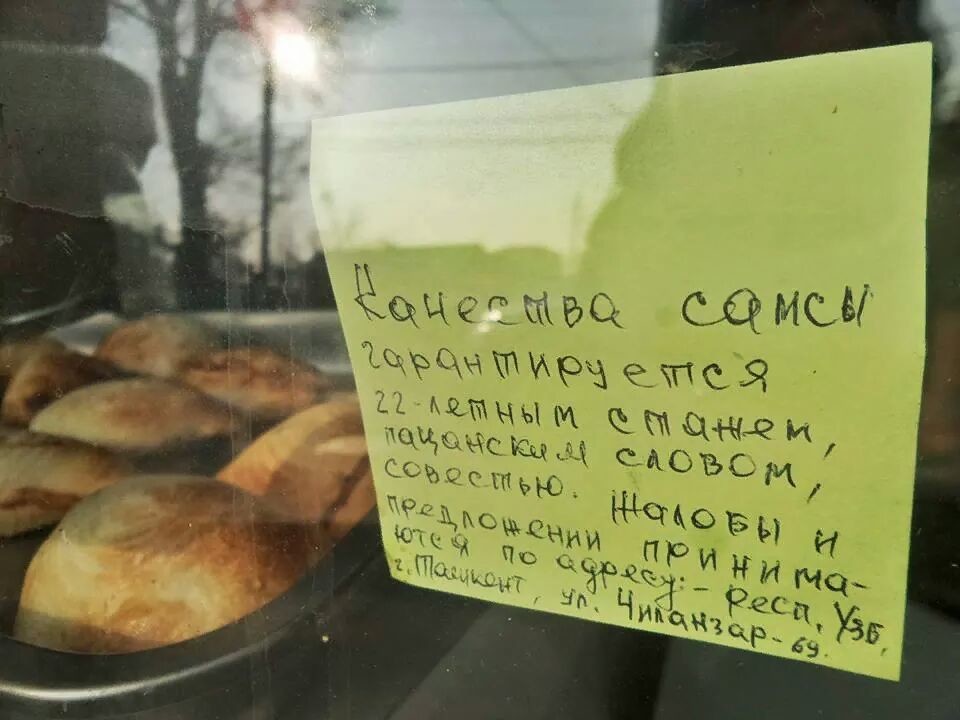 Качества самсы
гарантируется
22-летным стажем,
пацанским словом,
совестью. Жалобы и
предложении принима-
ются по адресу:- респ. Узб,
г. Ташкент, ул. Чиланзар-69.